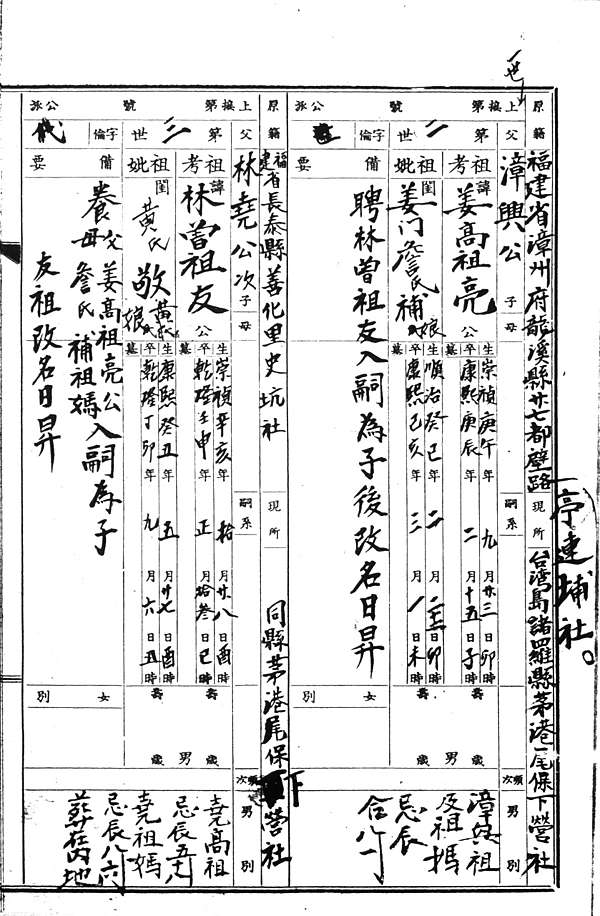 一世
原籍 福建省漳州府龍溪縣廿七都壁路
亭連埔社。
現所 台灣島諸羅縣茅港尾保下營社
上接第 號 公派
父 漳興公 子 母 嗣系
第二世 字倫
祖考 諱 姜高祖亮 公
生 崇禎庚午年 九月廿三日卯時
卒 康熙庚辰年 二月十五日子時
墓
祖妣 閨 姜门詹氏補娘
生 順治癸巳年 二月 日卯時
卒 康熙己亥年 三月 日未時
墓
壽 男 歲
備要
聘林曾祖友入嗣為子後改名日昇
女別
類次 男別
漳興祖
及祖媽
忌辰
合八一
原籍 福建省長泰縣善化里史坑社
現所 同縣茅港尾保下營社
上接第 號 公派
父 林堯公次子 母 嗣系
第三世 字倫 代
祖考 諱 林曾祖友 公
生 崇禎辛亥年 拾月廿八日酉時
卒 乾隆壬申年 正月拾叁日巳時
墓
祖妣 閨 黃氏 敬娘 黃氏
生 康熙癸丑年 五月廿七日酉時
卒 乾隆丁卯年 九月六日丑時
墓
壽 男 歲
備要
養父 姜高祖亮公入嗣為子
母 詹氏補祖媽
友祖改名日昇
女別
類次 男別
堯高祖
忌辰五
堯祖媽
忌辰八六